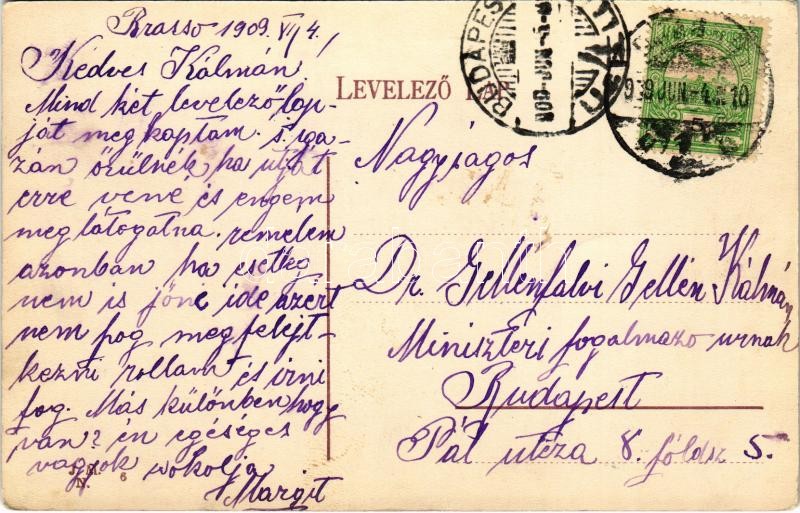 Brasso 1909. VI/4.
Kedves Kálmán!
Mind két levelező lap-
ját megkaptam. s iga-
zán örülnék ha útját
erre venné és engem
meglátogatna. remelem
azonban ha esetleg
nem is jöne ide azert
nem fog megfelejt-
kezni rollam és irni
fog. Más különben hogy
van? én egéséges
vagyok
Margit
LEVELEZŐ
BUDAPEST
909 JUN
Nagyságos
Dr. Gellénfalvi Gellén Kálmán
Miniszteri fogalmazo urnak
Budapest
Pál utcza 8. földsz 5.
6